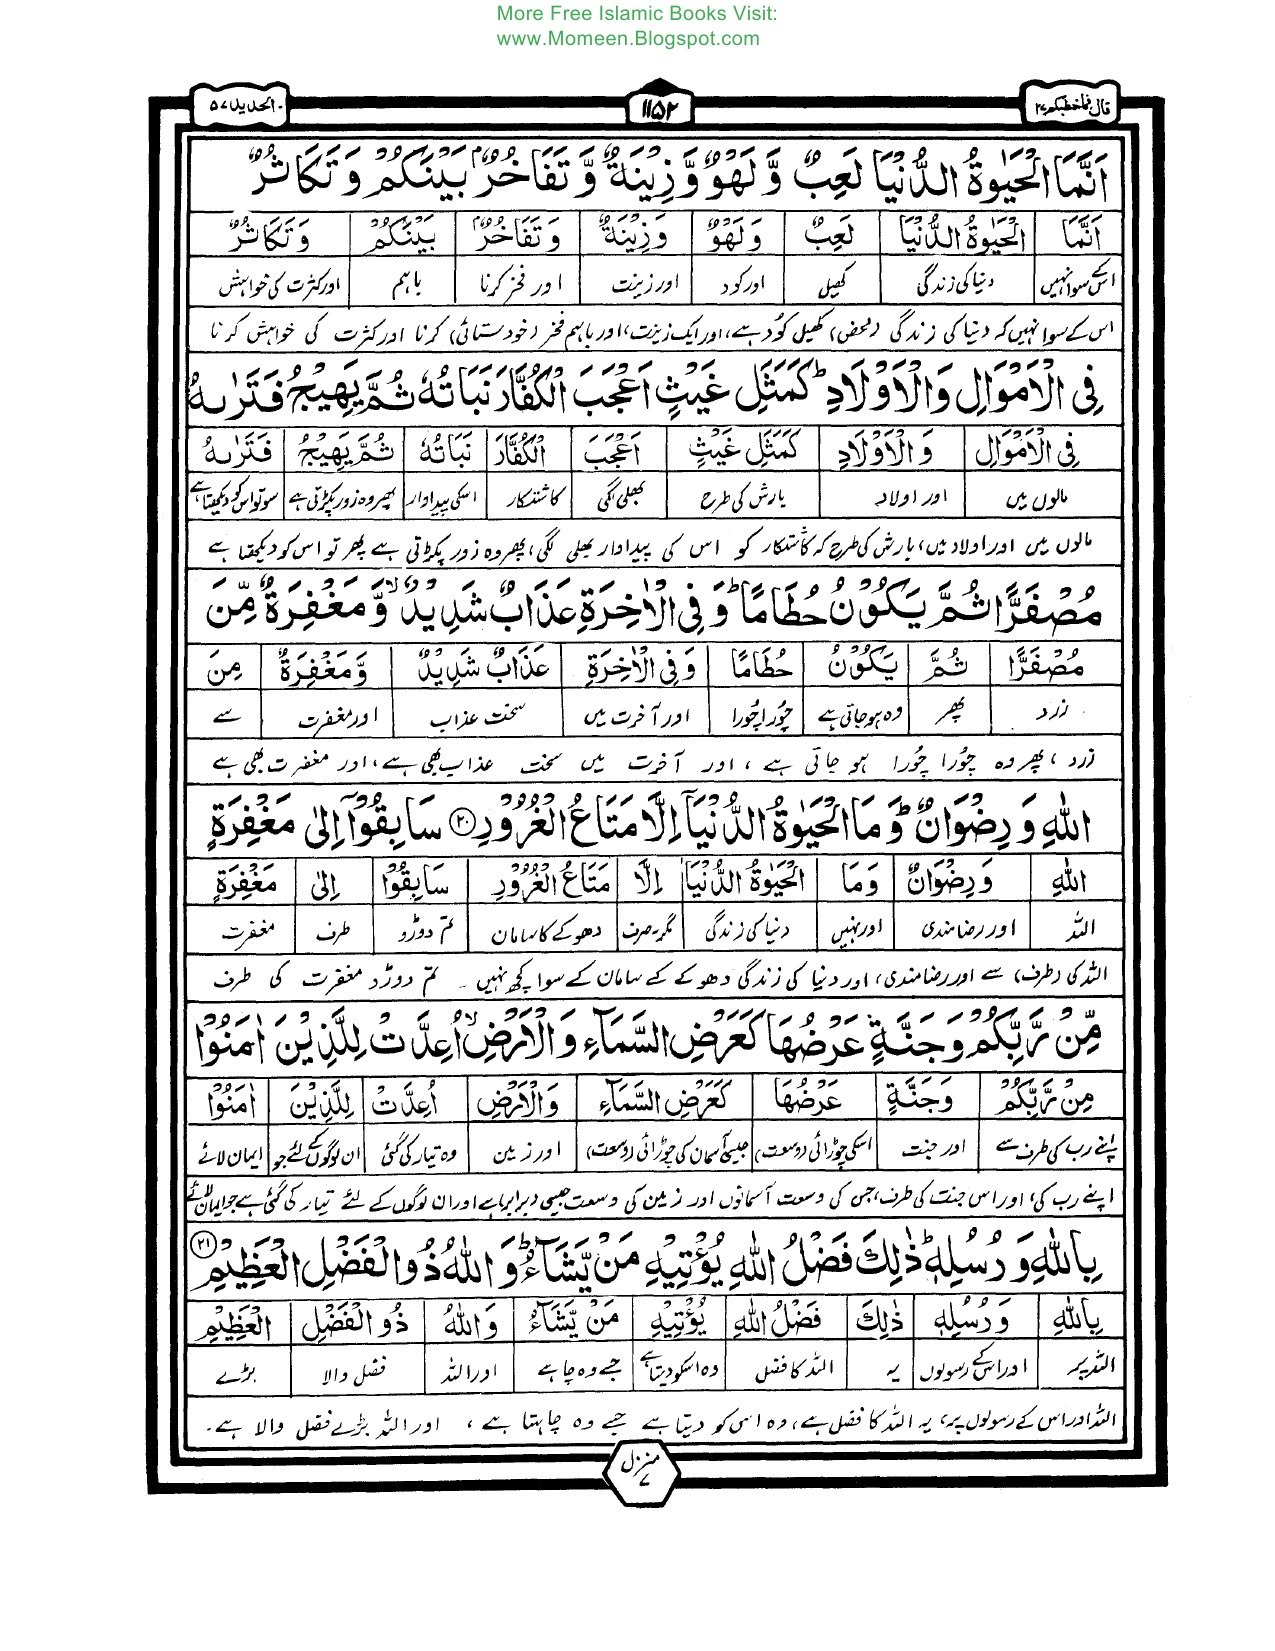 More Free Islamic Books Visit:
www.Momeen.Blogspot.com
قال فما خطبكم ۲۷ ۱۱۵۲ الحدید ۵۷
اَنَّمَا الْحَیٰوةُ الدُّنْیَا لَعِبٌ وَّ لَهْوٌ وَّ زِیْنَةٌ وَّ تَفَاخُرٌۢ بَیْنَكُمْ وَ تَكَاثُرٌ
اَنَّمَا الْحَیٰوةُ الدُّنْیَا لَعِبٌ وَ لَهْوٌ وَ زِیْنَةٌ وَ تَفَاخُرٌ بَیْنَكُمْ وَ تَكَاثُرٌ
اسکے سوا نہیں دنیا کی زندگی کھیل اور کود اور زینت اور فخر کرنا باہم اور کثرت کی خواہش
اس کے سوا نہیں کہ دنیا کی زندگی (محض) کھیل کود ہے، اور ایک زینت، اور باہم فخر (خودستائی) کرنا اور کثرت کی خواہش کرنا
فِی الْاَمْوَالِ وَالْاَوْلَادِ ؕ كَمَثَلِ غَیْثٍ اَعْجَبَ الْكُفَّارَ نَبَاتُهٗ ثُمَّ یَهِیْجُ فَتَرٰىهُ
فِی الْاَمْوَالِ وَالْاَوْلَادِ كَمَثَلِ غَیْثٍ اَعْجَبَ الْكُفَّارَ نَبَاتُهٗ ثُمَّ یَهِیْجُ فَتَرٰىهُ
مالوں میں اور اولاد بارش کی طرح بھلی لگی کاشتکار اسکی پیداوار پھر وہ زور پکڑتی ہے سو تو اس کو دیکھتا ہے
مالوں میں اور اولاد میں، بارش کی طرح کہ کاشتکار کو اس کی پیداوار بھلی لگی، پھر وہ زور پکڑتی ہے پھر تو اس کو دیکھتا ہے
مُصْفَرًّا ثُمَّ یَكُوْنُ حُطَامًا ؕ وَ فِی الْاٰخِرَةِ عَذَابٌ شَدِیْدٌ ۙ وَّ مَغْفِرَةٌ مِّنَ
مُصْفَرًّا ثُمَّ یَكُوْنُ حُطَامًا وَ فِی الْاٰخِرَةِ عَذَابٌ شَدِیْدٌ وَّ مَغْفِرَةٌ مِنَ
زرد پھر وہ ہو جاتی ہے چُورا چُورا اور آخرت میں سخت عذاب اور مغفرت سے
زرد، پھر وہ چُورا چُورا ہو جاتی ہے، اور آخرت میں سخت عذاب بھی ہے، اور مغفرت بھی ہے
اللّٰهِ وَ رِضْوَانٌ ؕ وَ مَا الْحَیٰوةُ الدُّنْیَاۤ اِلَّا مَتَاعُ الْغُرُوْرِ ۲۰ سَابِقُوْۤا اِلٰی مَغْفِرَةٍ
اللّٰهِ وَ رِضْوَانٌ وَ مَا الْحَیٰوةُ الدُّنْیَاۤ اِلَّا مَتَاعُ الْغُرُوْرِ سَابِقُوْۤا اِلٰی مَغْفِرَةٍ
اللہ اور رضا مندی اور نہیں دنیا کی زندگی مگر صرف دھوکے کا سامان تم دوڑو طرف مغفرت
اللہ کی (طرف) سے اور رضامندی، اور دنیا کی زندگی دھوکے کے سامان کے سوا کچھ نہیں ۔ تم دوڑو مغفرت کی طرف
مِّنْ رَّبِّكُمْ وَ جَنَّةٍ عَرْضُهَا كَعَرْضِ السَّمَآءِ وَ الْاَرْضِ ۙ اُعِدَّتْ لِلَّذِیْنَ اٰمَنُوْا
مِنْ رَّبِّكُمْ وَ جَنَّةٍ عَرْضُهَا كَعَرْضِ السَّمَآءِ وَالْاَرْضِ اُعِدَّتْ لِلَّذِیْنَ اٰمَنُوْا
اپنے رب کی طرف سے اور جنت اسکی چوڑائی (وسعت) جیسی آسمان کی چوڑائی (وسعت) اور زمین وہ تیار کی گئی ان لوگوں کے لئے جو ایمان لائے
اپنے رب کی، اور اس جنت کی طرف، جس کی وسعت آسمانوں اور زمین کی وسعت جیسی (برابر) ہے اور ان لوگوں کے لئے تیار کی گئی ہے جو ایمان لائے
بِاللّٰهِ وَ رُسُلِهٖ ؕ ذٰلِكَ فَضْلُ اللّٰهِ یُؤْتِیْهِ مَنْ یَّشَآءُ ؕ وَ اللّٰهُ ذُو الْفَضْلِ الْعَظِیْمِ ۲۱
بِاللّٰهِ وَ رُسُلِهٖ ذٰلِكَ فَضْلُ اللّٰهِ یُؤْتِیْهِ مَنْ یَّشَآءُ وَاللّٰهُ ذُو الْفَضْلِ الْعَظِیْمِ
اللہ پر اور اس کے رسولوں یہ اللہ کا فضل وہ اسکو دیتا ہے جسے وہ چاہے اور اللہ فضل والا بڑے
اللہ اور اس کے رسولوں پر، یہ اللہ کا فضل ہے، وہ اس کو دیتا ہے جسے وہ چاہتا ہے، اور اللہ بڑے فضل والا ہے۔
منزل ۷